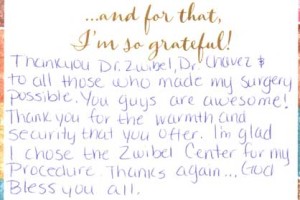 ...and for that,
I'm so grateful!
Thankyou Dr. Zwibel, Dr Chavez &
to all those who made my surgery
possible. You guys are awesome!
Thank you for the warmth and
security that you offer. I'm glad
I chose the Zwibel Center for my
Procedure. Thanks again... God
Bless you all.